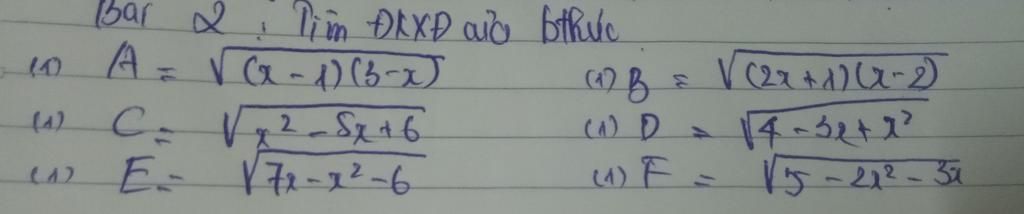 Bài 2 : Tìm ĐKXĐ của bthức
(1) A = √(x - 1)(3-x) (1) B = √(2x+1)(x-2)
(1) C = √x² - 5x + 6 (1) D = √4 - 3x + x²
(1) E = √7x - x² - 6 (1) F = √5 - 2x² - 3x